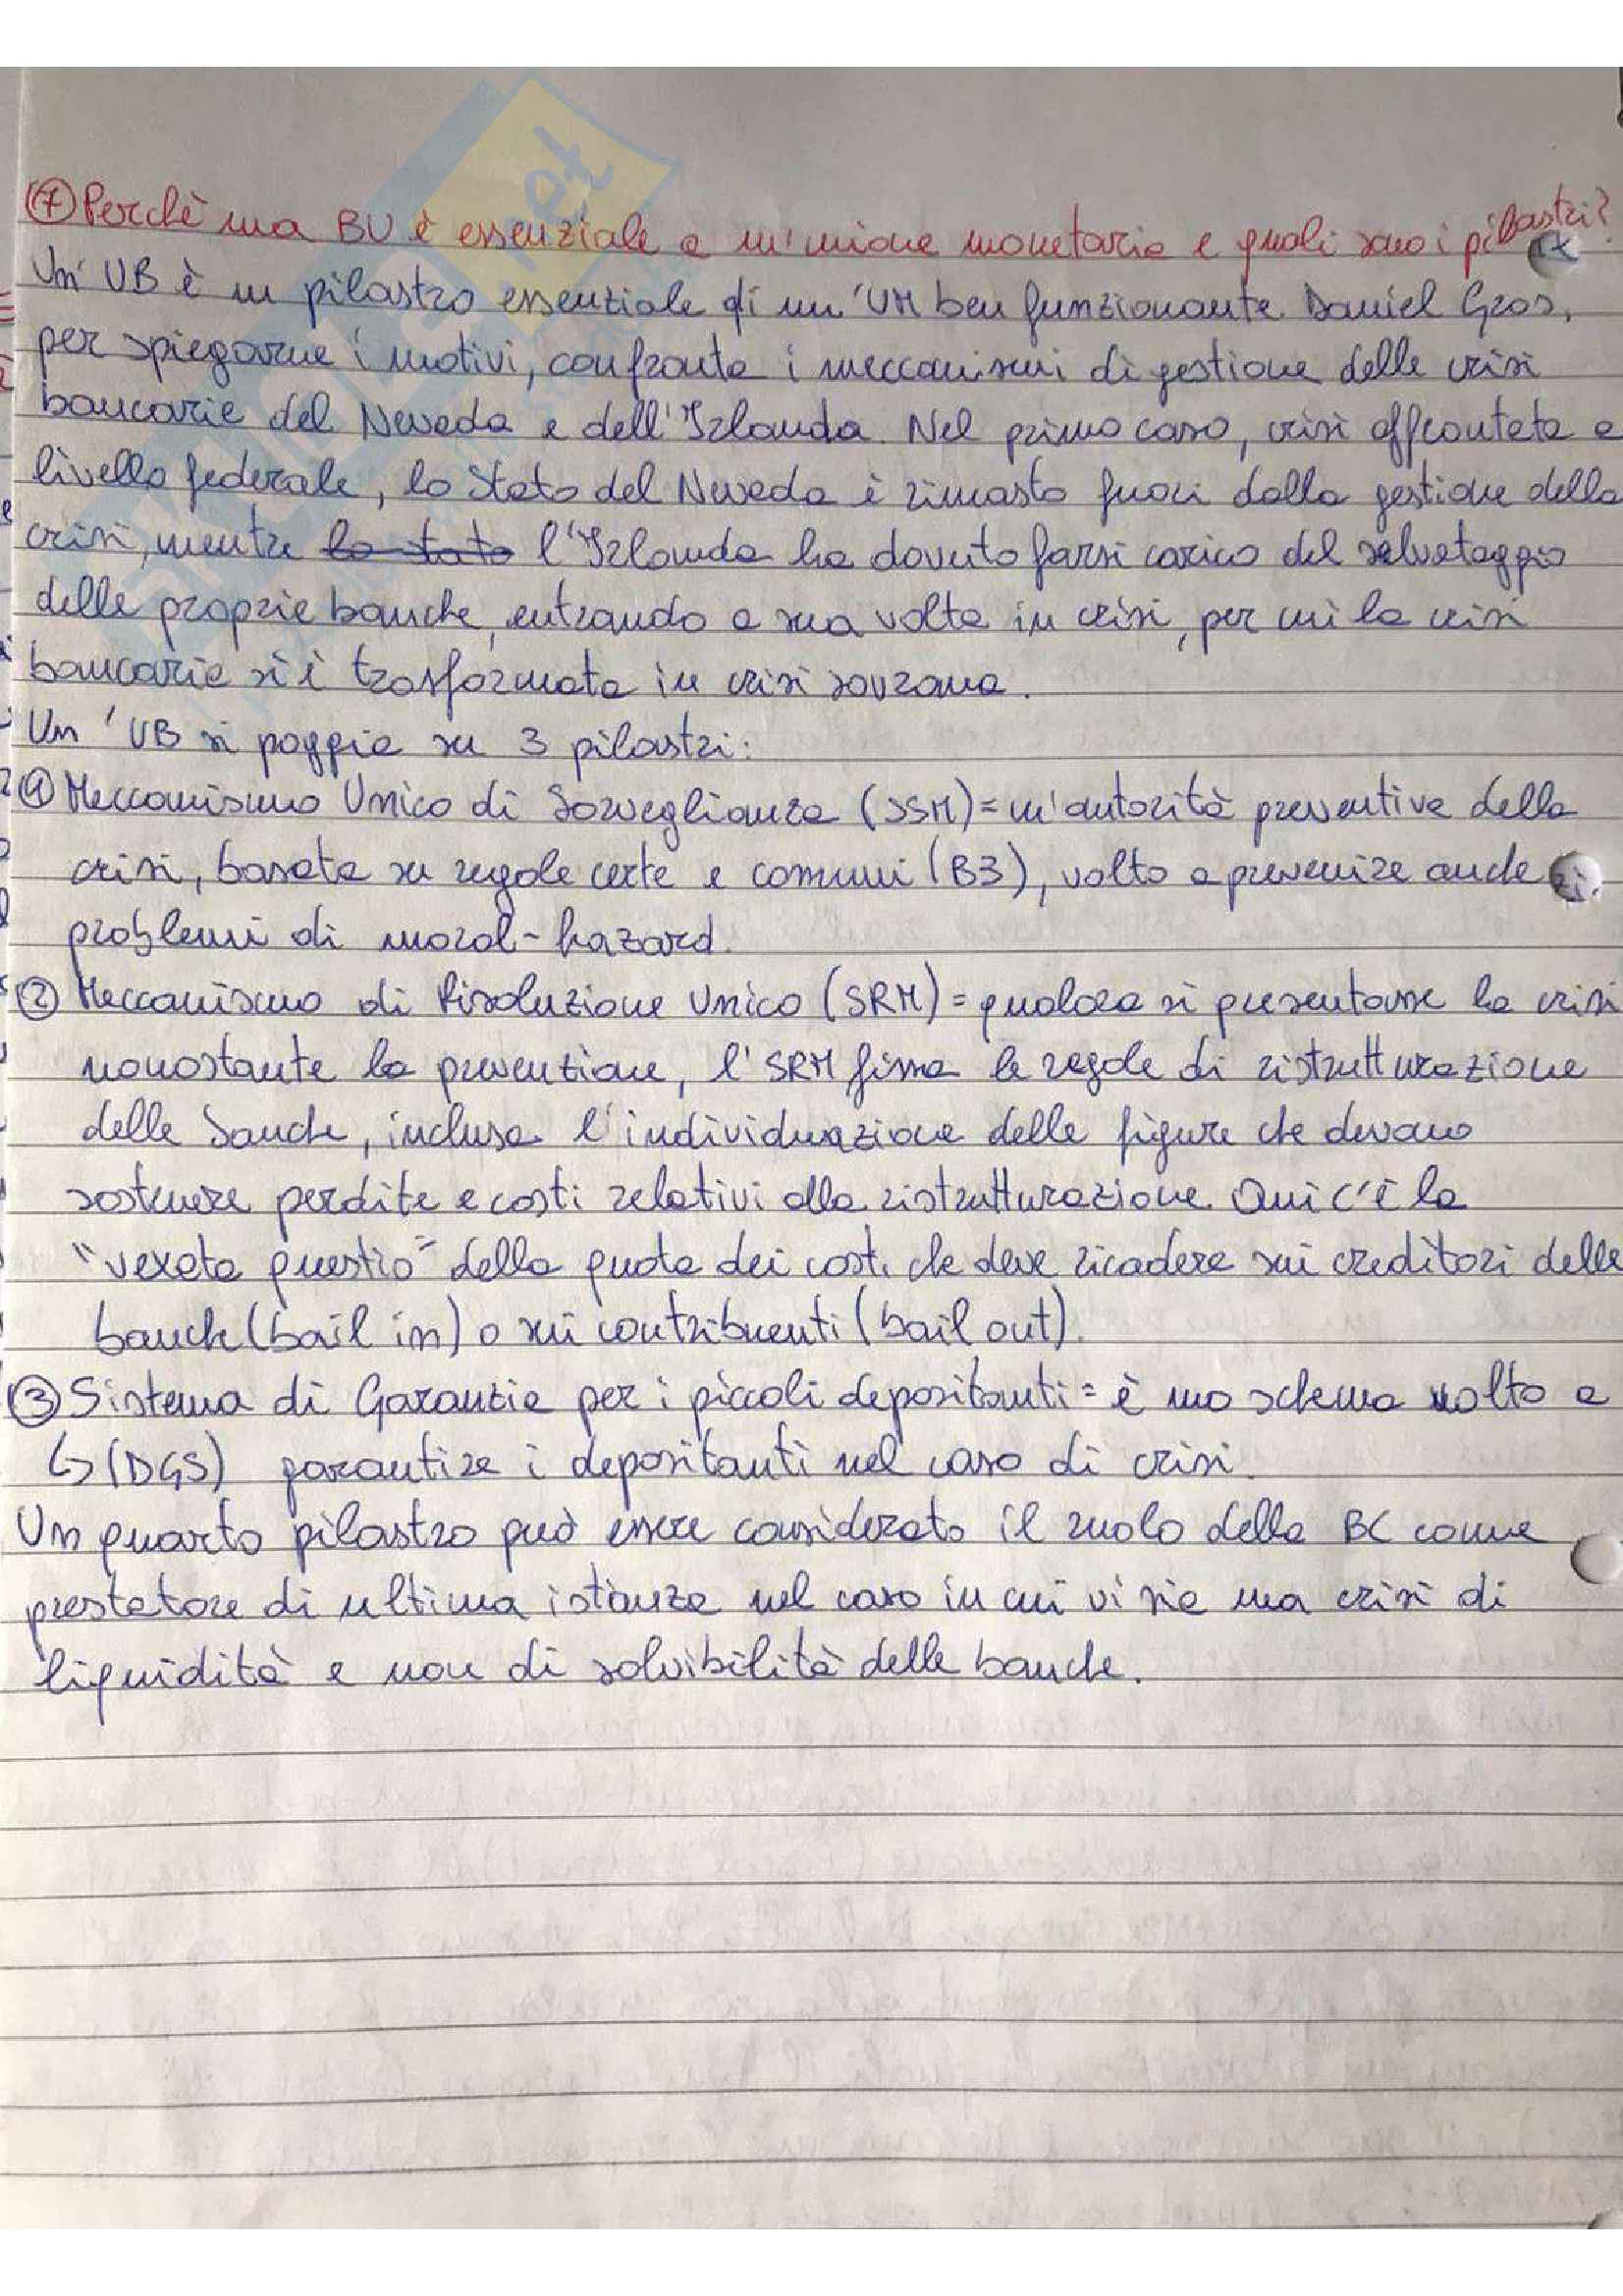 ⑦ Perchè una BU è essenziale a un'unione monetaria e quali sono i pilastri?
Un' UB è un pilastro essenziale di un'UM ben funzionante. Daniel Gros,
per spiegarne i motivi, confronta i meccanismi di gestione delle crisi
bancarie del Neveda e dell'Islanda. Nel primo caso, crisi affrontata a
livello federale, lo Stato del Neveda è rimasto fuori dalla gestione della
crisi, mentre lo stato l'Islanda ha dovuto farsi carico del salvataggio
delle proprie banche, entrando a sua volta in crisi, per cui la crisi
bancaria si è trasformata in crisi sovrana.
Un 'UB si poggia su 3 pilastri:
① Meccanismo Unico di Sorveglianza (SSM) = un'autorità preventiva della
crisi, basata su regole certe e comuni (B3), volto a prevenire anche
problemi di moral-hazard.
② Meccanismo di Risoluzione Unico (SRM) = qualora si presentasse la crisi
nonostante la prevenzione, l'SRM fissa le regole di ristrutturazione
delle banche, inclusa l'individuazione delle figure che devono
sostenere perdite e costi relativi alla ristrutturazione. Qui c'è la
"vexata questio" della quota dei costi che deve ricadere sui creditori delle
banche (bail in) o sui contribuenti (bail out).
③ Sistema di Garanzie per i piccoli depositanti = è uno schema volto a
↳ (DGS) garantire i depositanti nel caso di crisi.
Un quarto pilastro può essere considerato il ruolo della BC come
prestatore di ultima istanza nel caso in cui vi sia una crisi di
liquidità e non di solvibilità delle banche.